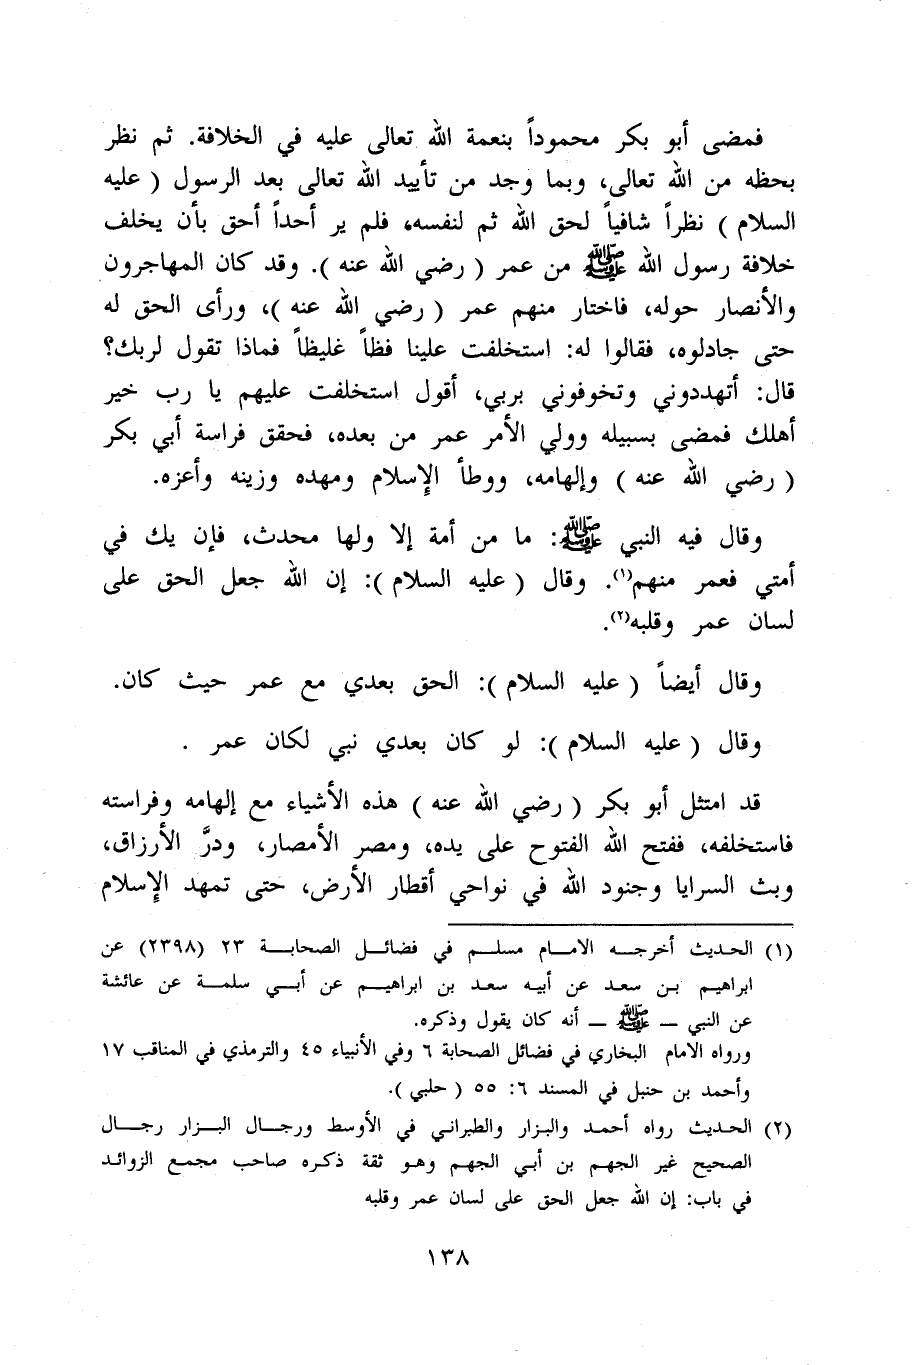 فمضى أبو بكر محموداً بنعمة الله تعالى عليه في الخلافة. ثم نظر
بحظه من الله تعالى، وبما وجد من تأييد الله تعالى بعد الرسول ( عليه
السلام ) نظراً شافياً لحق الله ثم لنفسه، فلم ير أحداً أحق بأن يخلف
خلافة رسول الله ﷺ من عمر ( رضي الله عنه ). وقد كان المهاجرون
والأنصار حوله، فاختار منهم عمر ( رضي الله عنه )، ورأى الحق له
حتى جادلوه، فقالوا له: استخلفت علينا فظاً غليظاً فماذا تقول لربك؟
قال: أتهددوني وتخوفوني بربي، أقول استخلفت عليهم يا رب خير
أهلك فمضى بسبيله وولي الأمر عمر من بعده، فحقق فراسة أبي بكر
( رضي الله عنه ) وإلهامه، ووطأ الإسلام ومهده وزينه وأعزه.
وقال فيه النبي ﷺ: ما من أمة إلا ولها محدث، فإن يك في
أمتي فعمر منهم(١). وقال ( عليه السلام ): إن الله جعل الحق على
لسان عمر وقلبه(٢).
وقال أيضاً ( عليه السلام ): الحق بعدي مع عمر حيث كان.
وقال ( عليه السلام ): لو كان بعدي نبي لكان عمر .
قد امتثل أبو بكر ( رضي الله عنه ) هذه الأشياء مع إلهامه وفراسته
فاستخلفه، ففتح الله الفتوح على يده، ومصر الأمصار، ودرَّ الأرزاق،
وبث السرايا وجنود الله في نواحي أقطار الأرض، حتى تمهد الإسلام
(١) الحديث أخرجه الامام مسلم في فضائل الصحابة ٢٣ (٢٣٩٨) عن
ابراهيم بن سعد عن أبيه سعد بن ابراهيم عن أبي سلمة عن عائشة
عن النبي ـ ﷺ ـ أنه كان يقول وذكره.
ورواه الامام البخاري في فضائل الصحابة ٦ وفي الأنبياء ٤٥ والترمذي في المناقب ١٧
وأحمد بن حنبل في المسند ٦: ٥٥ ( حلبي ).
(٢) الحديث رواه أحمد والبزار والطبراني في الأوسط ورجال البزار رجال
الصحيح غير الجهم بن أبي الجهم وهو ثقة ذكره صاحب مجمع الزوائد
في باب: إن الله جعل الحق على لسان عمر وقلبه
١٣٨